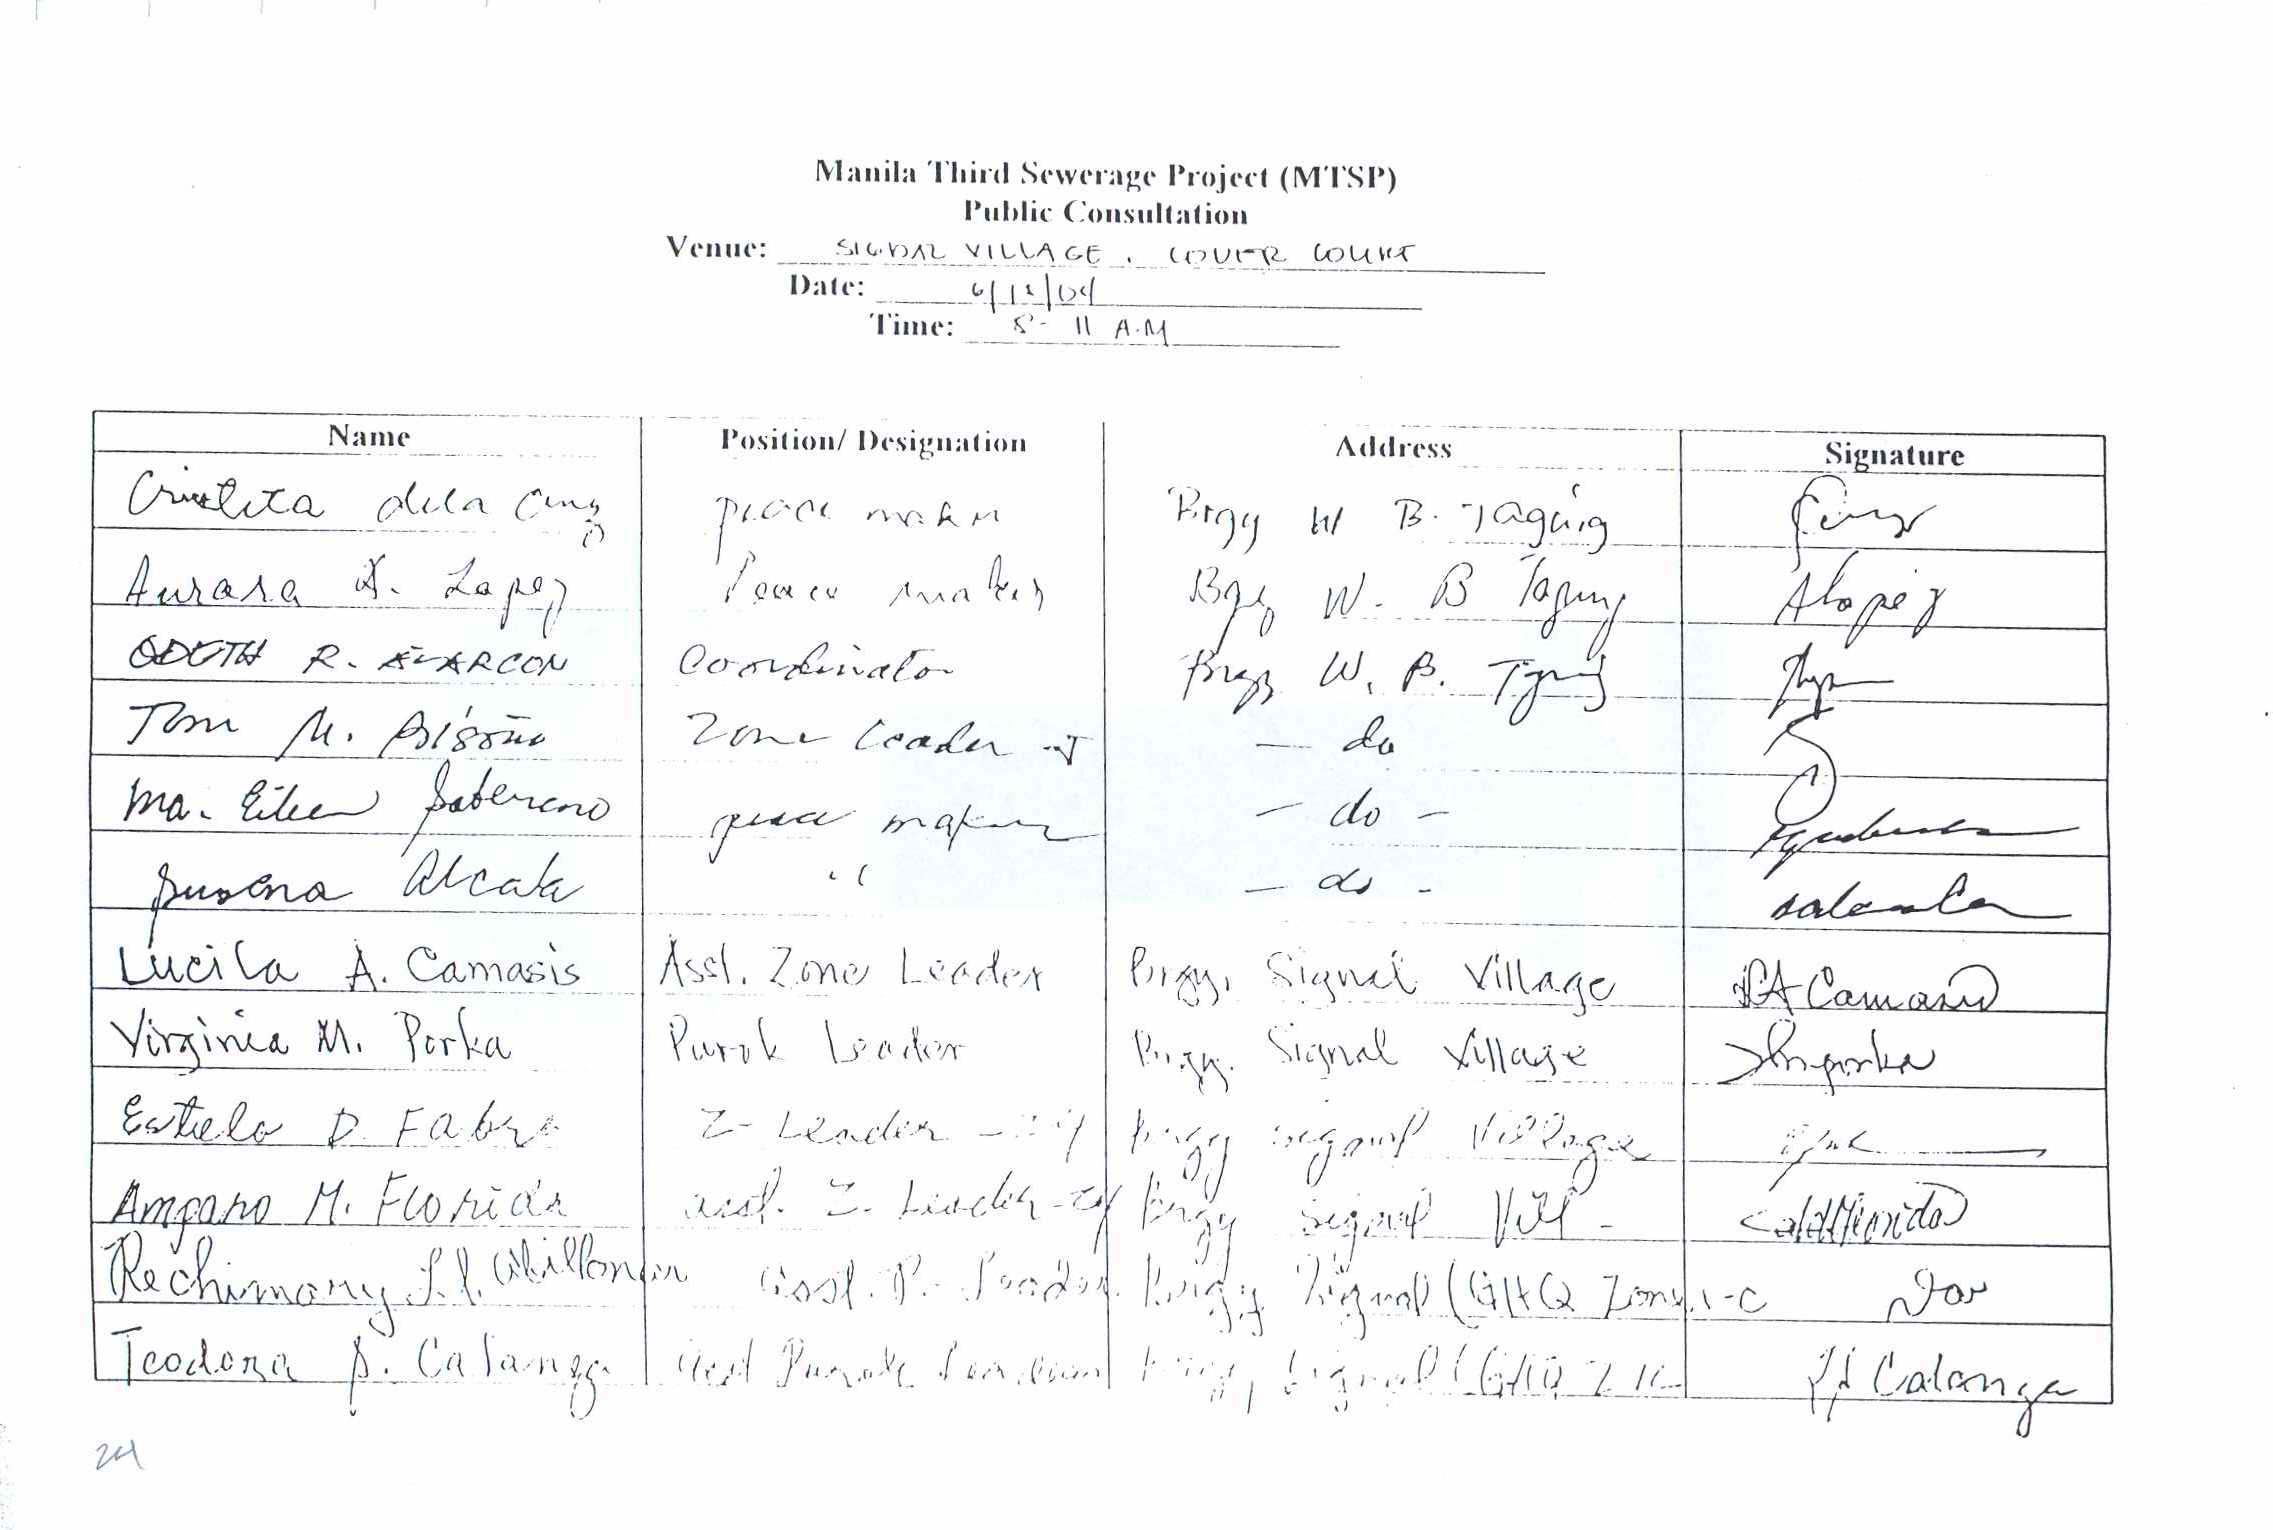 Manila Third Sewerage Project (MTSP)
Public Consultation
Venue: SIGNAL VILLAGE, COVER COURT
Date: 6/18/04
Time: 8 - 11 A.M
Name Position/ Designation Address Signature
Cristeta dela Cruz peace maker Brgy W B. Taguig
Aurora A. Lopez Peace maker Brgy W. B Taguig ALopez
ODETH R. ALARCON Coordinator Brgy W. B. Taguig
Tom M. Zone Leader — do
Ma. Eileen Soberano peace maker — do —
Susana Alcala " — do —
Lucila A. Camasis Asst. Zone Leader Brgy. Signal Village LA Camasis
Virginia M. Porka Purok Leader Brgy. Signal Village
Estela D. Fabro Z- Leader Brgy Signal Village
Amparo M. Florida asst. Z. Leader Brgy Signal Vill -
Rechimony asst. P. Leader Brgy Signal (GHQ Zone 1-C
Teodora S. Calanga asst Purok Brgy, Signal (GHQ Calanga
24